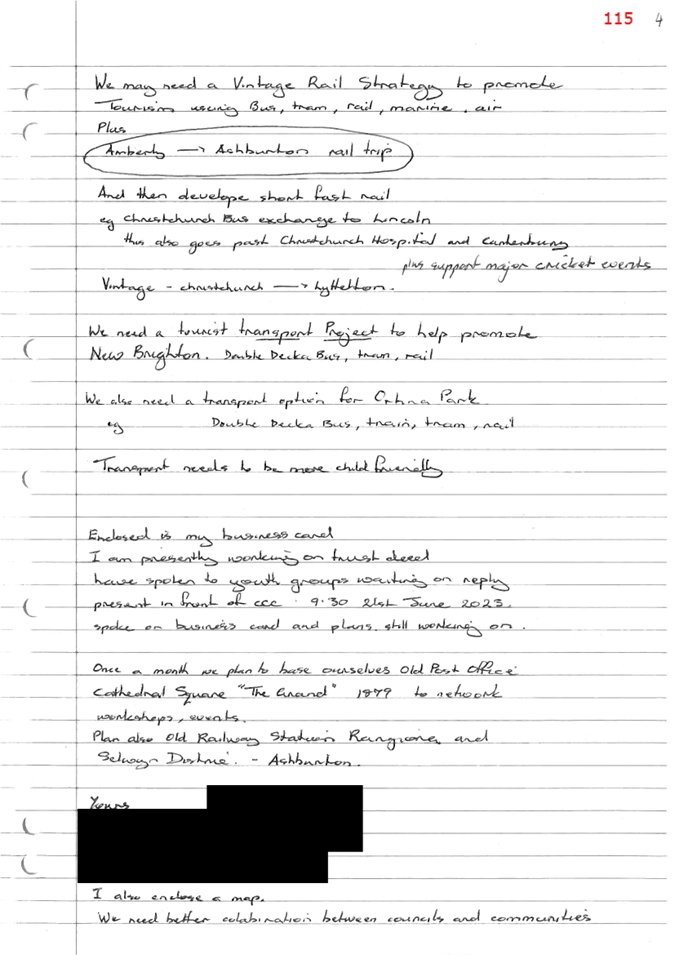 115 4
We may need a Vintage Rail Strategy to promote
Tourism using Bus, tram, rail, marine, air
Plus
Amberly → Ashburton rail trip
And then develope short fast rail
eg Christchurch Bus exchange to Lincoln
this also goes past Christchurch Hospital and Canterbury
plus support major cricket events
Vintage - christchurch → Lyttelton.
We need a tourist transport Project to help promote
New Brighton. Double Decka Bus, tram, rail
We also need a transport option for Orana Park
eg Double Decka Bus, train, tram, rail
Transport needs to be more child friendly
Enclosed is my business card
I am presently working on trust deed
have spoken to youth groups waiting on reply
present in front of ccc 9.30 21st June 2023.
spoke on business card and plans. still working on.
Once a month we plan to base ourselves Old Post Office
Cathedral Square "The Grand" 1879 to network
workshops, events.
Plan also Old Railway Station Rangiora and
Selwyn District. - Ashburton.
Yours
I also enclose a map.
We need better colabination between councils and communities